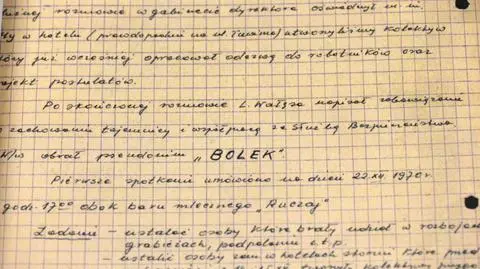 rozmowie w gabinecie dyrektora oświadczył m.in.
w hotelu (prawdopodobnie na ul. ) utworzyliśmy kolektyw
który już wcześniej opracował odezwę do robotników oraz
projekt postulatów.
Po skończonej rozmowie L. Wałęsa napisał zobowiązanie
o zachowaniu tajemnicy i współpracy ze Służbą Bezpieczeństwa.
W/w obrał pseudonim "BOLEK".
Pierwsze spotkanie umówiono na dzień 22.XII.1970 r.
godz. 17⁰⁰ obok baru mlecznego "Ruczaj"
Zadania - ustalać osoby które brały udział w rozbojach
grabieżach, podpaleniu i.t.p.
- ustalić osoby zam. w hotelach stoczni które przed